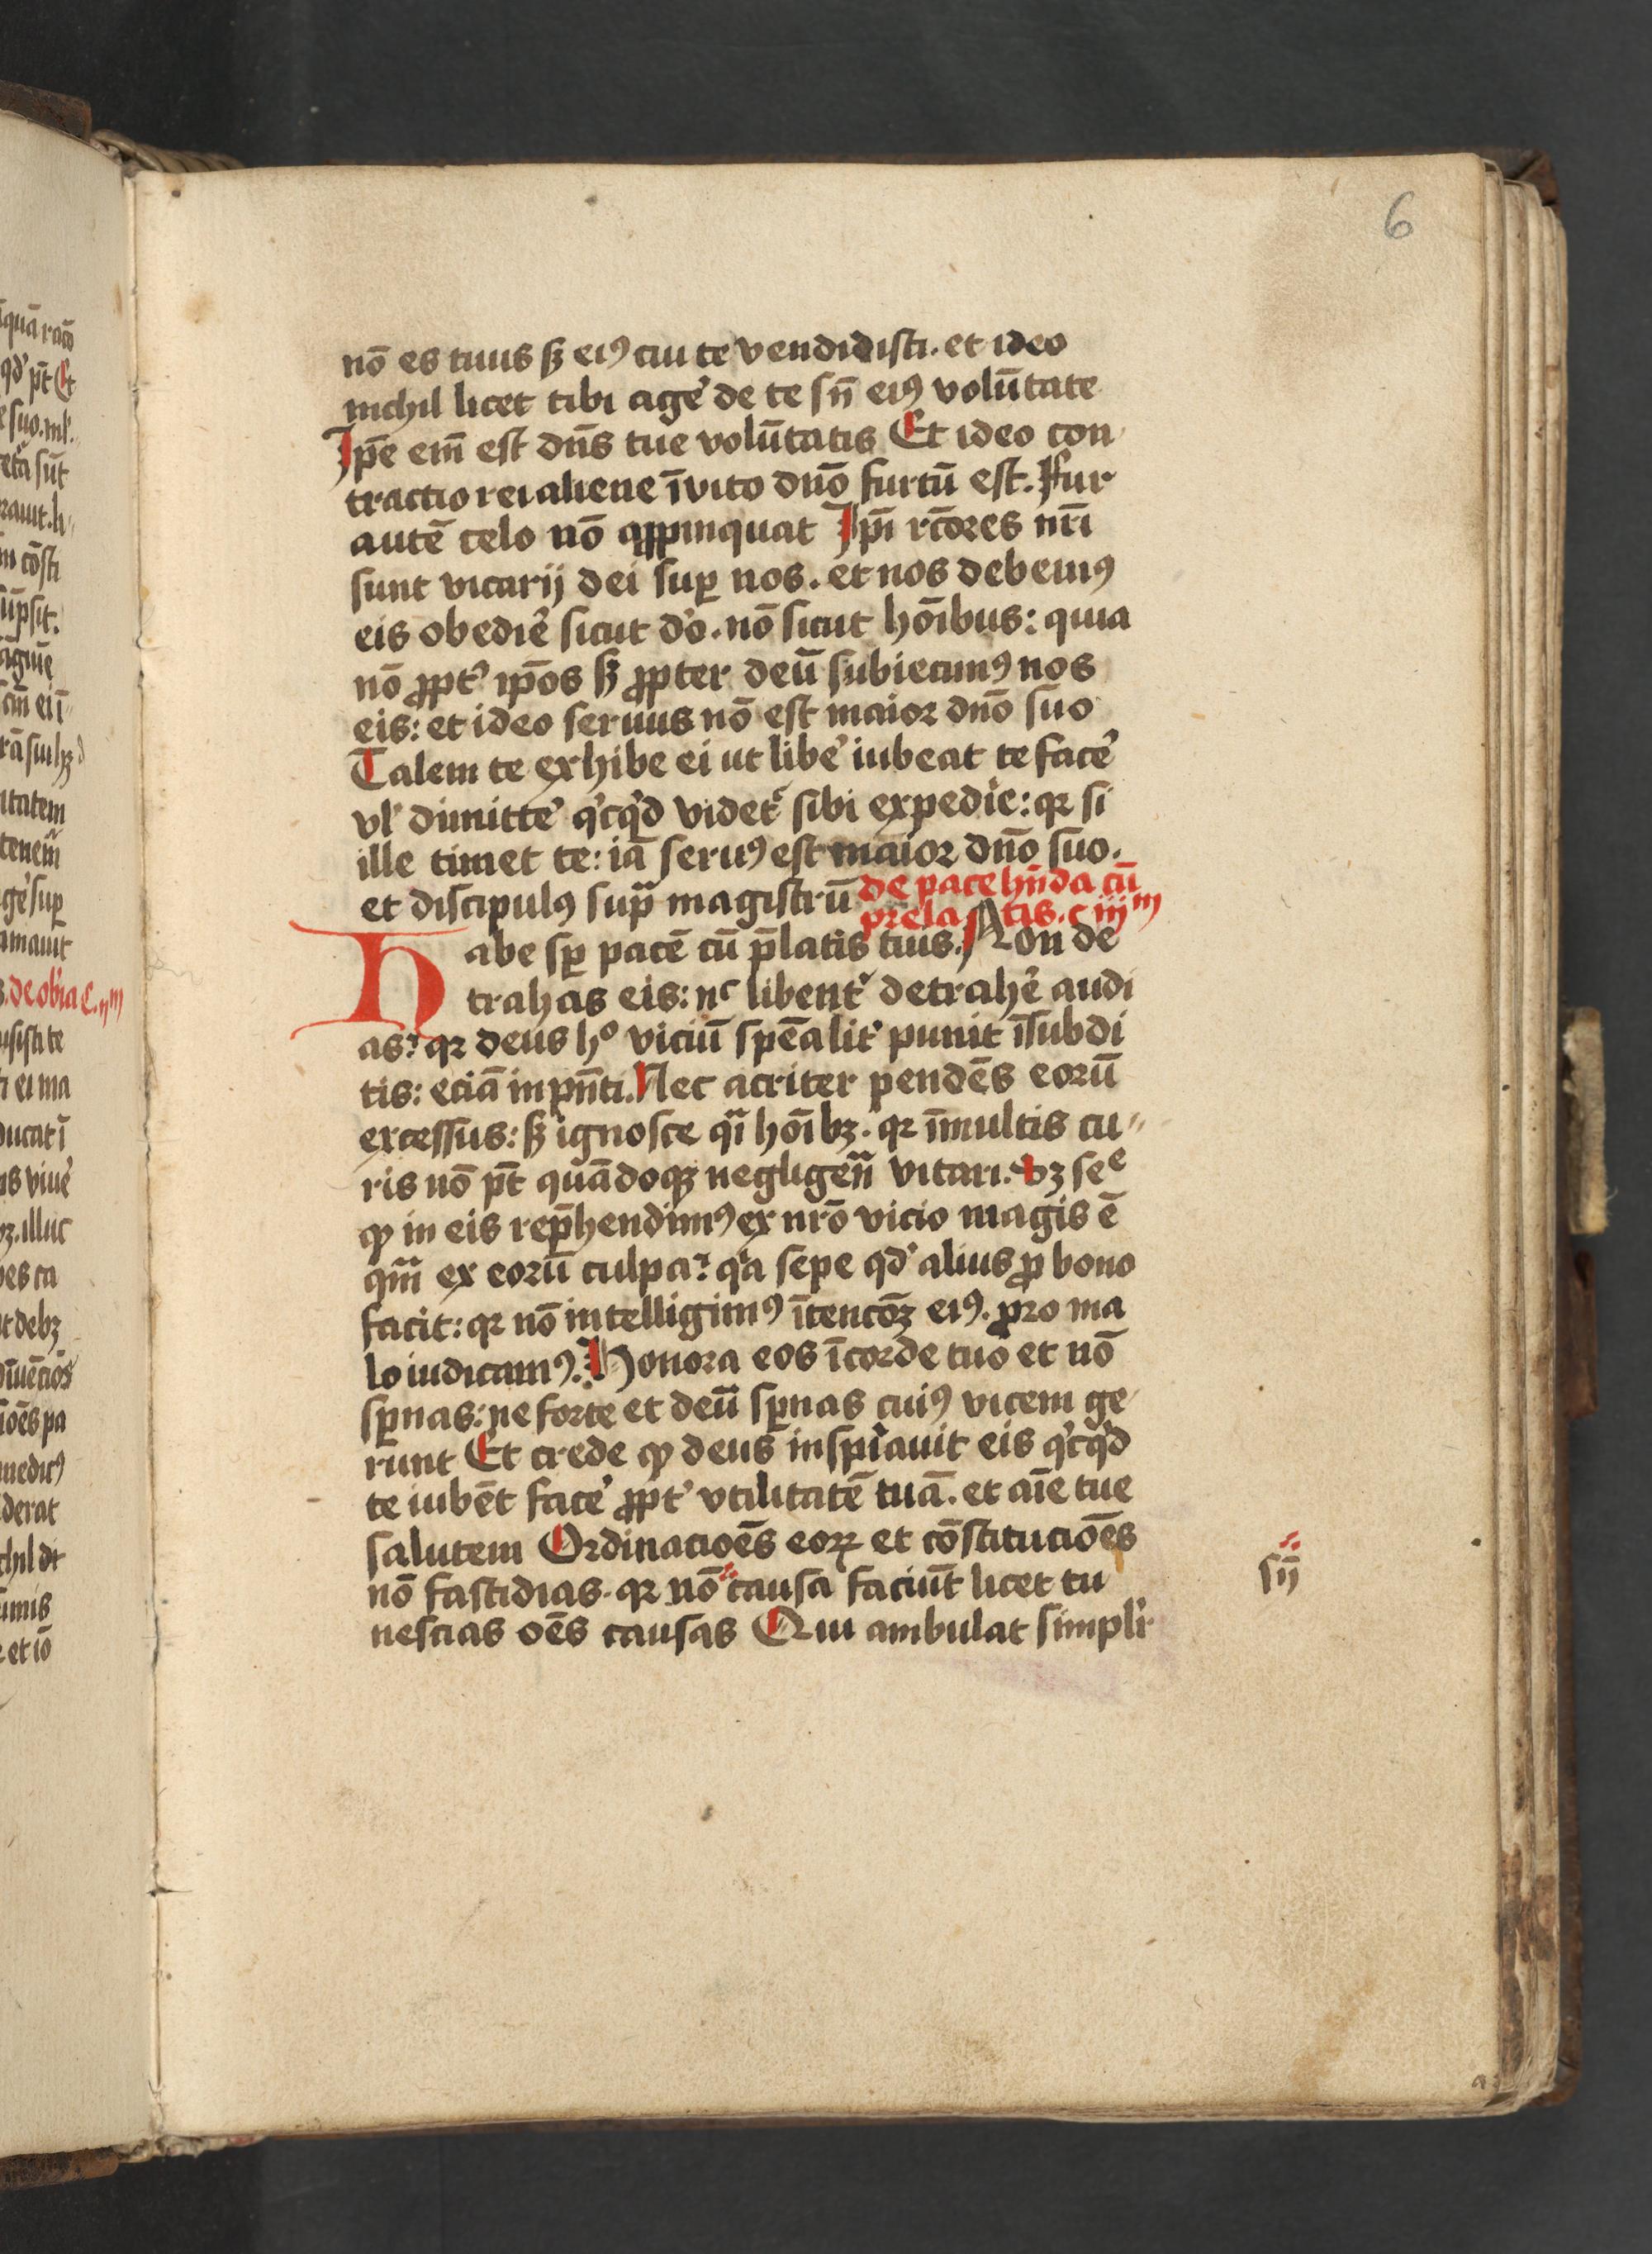 6
nō es tuus sꝫ eiꝰ cui te vendidisti. et ideo
nichil licet tibi age᷑ de te sn̄ eiꝰ volūtate
Ip̄e em̄ est dn̄s tue volūtatis Et ideo con
tractio rei aliene īvito dn̄o furtū est. Fur
autē celo nō aꝓpinquat Ip̄i rc̄ores nr̄i
sunt vicarij dei suꝑ nos. et nos debemꝰ
eis obedie᷑ sicut do᷑. nō sicut hoı̄bus: quia
nō ꝓpt᷑ ip̄os sꝫ ꝓpter deū subiecimꝰ nos
eis: et ideo seruus nō est maior dn̄o suo
Talem te exhibe ei ut libe᷑ iubeat te face᷑
vl᷑ dimitte᷑ qͥcqͥd videt᷑ sibi expedie᷑: qꝛ si
ille timet te: iā seruꝰ est maior dn̄o suo.
et discipulꝰ sup̄ magistrū de pace hn̄da cū
prelatis. c iijm
Habe sꝑ pacē cū p̄latis tuis. Non de
trahas eis: nc libent᷑ detrahe᷑ audi
as: qꝛ deus hͦ viciū spēalit᷑ punit ī subdi
tis: eciā in pn̄ti. Nec acriter pendēs eorū
excessus: sꝫ ignosce qͣi hoı̄bꝫ. qꝛ ī multis cu
ris nō pt̄ quādoqꝫ negligen̄ vitari.
ꝙ in eis rep̄hendimꝰ ex nr̄o vicio magis ē
qm̄ ex eorū culpa: qͥa sepe qd᷑ alius ꝓ bono
facit: qꝛ nō intelligimꝰ ītencōꝫ eiꝰ. pro ma
lo iudicamꝰ. Honora eos ī corde tuo et nō
sꝑnas: ne forte et deū sꝑnas cuiꝰ vicem ge
runt Et crede ꝙ deus inspirauit eis qͥcqͥd
te iubēt face᷑ ꝓpt᷑ vtilitatē tuā. et aı̄e tue
salutem Ordinacioēs eoꝝ et cōstitucioēs
nō fastidias. qꝛ nō causa faciūt licet tu
sn̄
nescias oēs causas Qui ambulat simpli